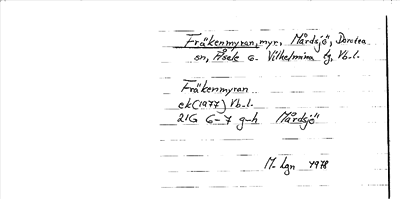 Fräkenmyran, myr, Mårdsjö, Dorotea
sn, Åsele o. Vilhelmina tg, Vb.l.
Fräkenmyran
ek (1977) Vb.l.
21G 6-7 g-h Mårdsjö
M. Lgn 1978